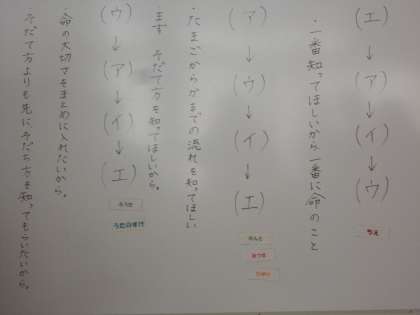 (エ)→(ア)→(イ)→(ウ)
・一番知ってほしいから一番に命のこと
ちえ
(ア)→(ウ)→(イ)→(エ)
・たまごからがまでの流れを知ってほしい
(ウ)→(ア)→(イ)→(エ)
・まず そだて方を知ってほしいから。
・命の大切さをまとめに入れたいから。
・そだて方よりも先にそだち方を知ってもらいたいから。